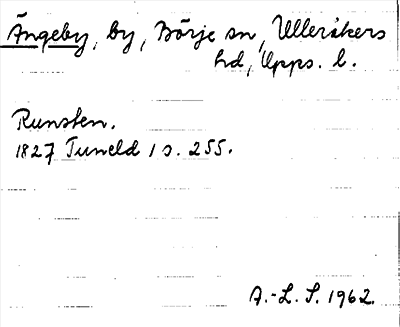 Ängeby, by, Börje sn, Ulleråkers
hd, Upps. l.
Runsten.
1827 Tuneld 1 s. 255.
A.-L. S. 1962.